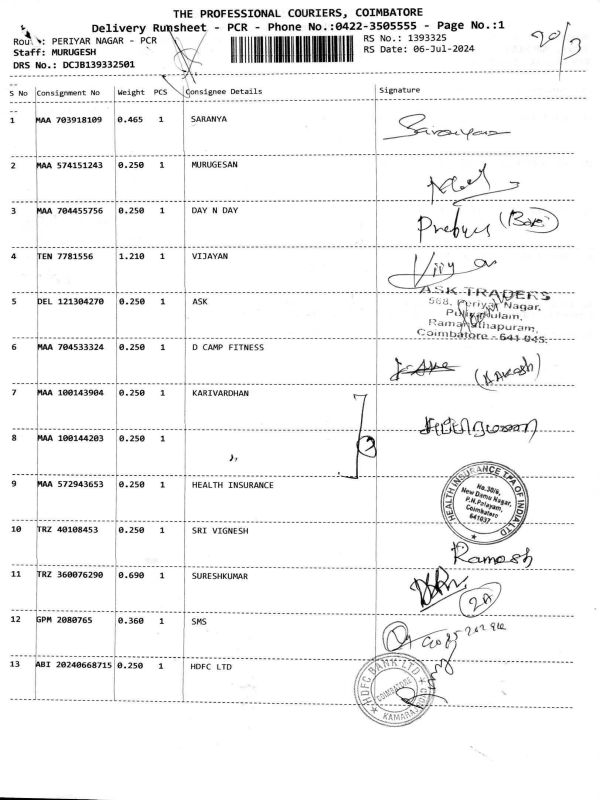 THE PROFESSIONAL COURIERS, COIMBATORE
Delivery Runsheet - PCR - Phone No.:0422-3505555 - Page No.:1
PERIYAR NAGAR - PCR RS No.: 1393325
Staff: MURUGESH RS Date: 06-Jul-2024
DRS No.: DCJB139332501
20/3
S No Consignment No Weight PCS Consignee Details Signature
1 MAA 703918109 0.465 1 SARANYA
2 MAA 574151243 0.250 1 MURUGESAN
3 MAA 704455756 0.250 1 DAY N DAY
4 TEN 7781556 1.210 1 VIJAYAN
5 DEL 121304270 0.250 1 ASK
ASK TRADERS
568, Periyar Nagar,
Puliyakulam,
Ramanathapuram,
Coimbatore - 641 045.
6 MAA 704533324 0.250 1 D CAMP FITNESS
7 MAA 100143904 0.250 1 KARIVARDHAN
8 MAA 100144203 0.250 1 "
9 MAA 572943653 0.250 1 HEALTH INSURANCE
HEALTH INSURANCE TPA OF INDIA LTD
No.38/6,
New Damu Nagar,
P.N.Palayam,
Coimbatore
641037
10 TRZ 40108453 0.250 1 SRI VIGNESH Ramesh
11 TRZ 360076290 0.690 1 SURESHKUMAR
12 GPM 2080765 0.360 1 SMS
13 ABI 20240668715 0.250 1 HDFC LTD
HDFC BANK LTD
COIMBATORE